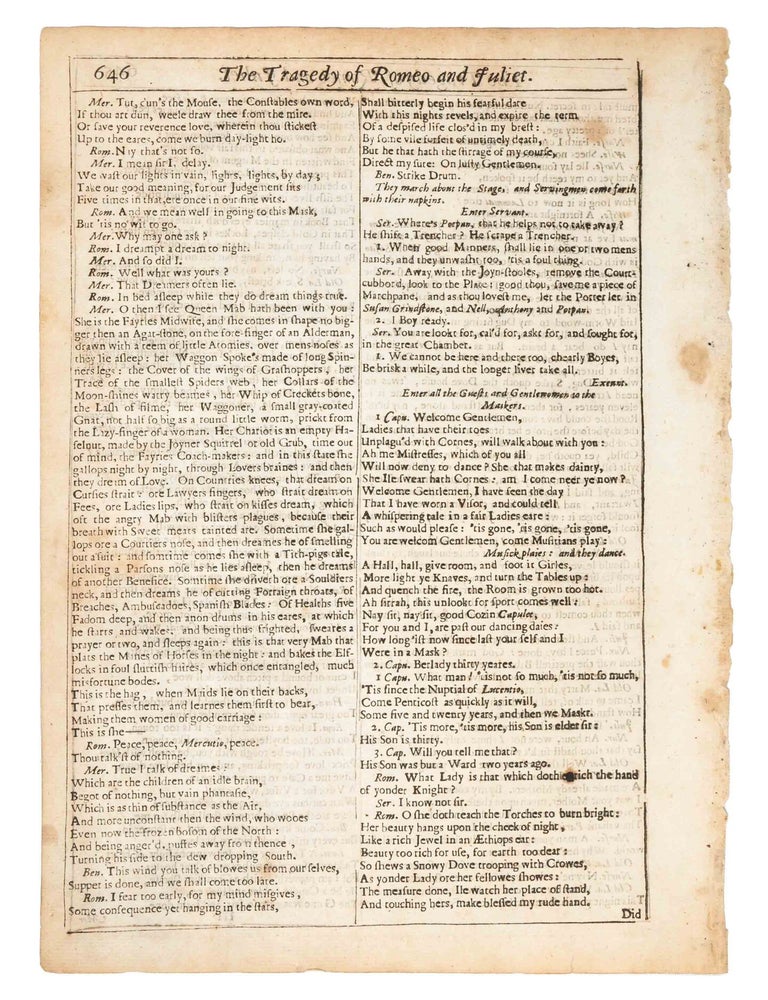 646
The Tragedy of Romeo and Juliet.
Mer. Tut, dun's the Mouse, the Constables own word,
If thou art dun, weele draw thee from the mire.
Or save your reverence love, wherein thou stickest
Up to the eares, come we burn day-light ho.
Rom. Ny that's not so.
Mer. I mean sir I, delay.
We wast our lights in vain, lights, lights, by day;
Take our good meaning, for our Judgement sits
Five times in that, ere once in our fine wits.
Rom. And we mean well in going to this Mask,
But 'tis no wit to go.
Mer. Why may one ask?
Rom. I dreampt a dream to night.
Mer. And so did I.
Rom. Well what was yours?
Mer. That Dreamers often lie.
Rom. In bed asleep while they do dream things true.
Mer. O then I see Queen Mab hath been with you:
She is the Fayries Midwife, and she comes in shape no big-
ger then an Agat-stone, on the fore-finger of an Alderman,
drawn with a teem of little Atomies, over mens noses as
they lie asleep: her Waggon Spoke's made of long Spin-
ners legs: the Cover of the wings of Grashoppers, her
Trace of the smallest Spiders web, her Collars of the
Moon-shines watry beames, her Whip of Creckets bone,
the Lash of filme, her Waggoner, a small gray-coated
Gnat, not half so big as a round little worm, prickt from
the Lazy-finger of a woman. Her Chariot is an empty Ha-
selnut, made by the Joyner Squirrel or old Grub, time out
of mind, the Fayries Coach-makers: and in this state she
gallops night by night, through Lovers braines: and then
they dream of Love. On Countries knees, that dream on
Cursies strait: ore Lawyers fingers, who strait dream on
Fees, ore Ladies lips, who strait on kisses dream, which
oft the angry Mab with blisters plagues, because their
breath with Sweet meats tainted are. Sometime she gal-
lops ore a Courtiers nose, and then dreames he of smelling
out a suit: and somtime comes she with a Tith-pigs tale,
tickling a Parsons nose as he lies asleep, then he dreams
of another Benefice. Somtime she driveth ore a Souldiers
neck, and then dreames he of cutting Forraign throats, of
Breaches, Ambuscadoes, Spanish Blades: Of Healths five
Fadom deep, and then anon drums in his eares, at which
he starts and wakes; and being thus frighted, sweares a
prayer or two, and sleeps again: this is that very Mab that
plats the Manes of Horses in the night: and bakes the Elf-
locks in foul sluttish haires, which once entangled, much
misfortune bodes.
This is the hag, when Maids lie on their backs,
That presses them, and learnes them first to bear,
Making them women of good carriage:
This is she—
Rom. Peace, peace, Mercutio, peace.
Thou talk'st of nothing.
Mer. True I talk of dreames:
Which are the children of an idle brain,
Begot of nothing, but vain phantasie,
Which is as thin of substance as the Air,
And more unconstant then the wind, who wooes
Even now the frozen bosom of the North:
And being anger'd, puffes away from thence,
Turning his side to the dew dropping South.
Ben. This wind you talk of blowes us from our selves,
Supper is done, and we shall come too late.
Rom. I fear too early, for my mind misgives,
Some consequence yet hanging in the stars,
Shall bitterly begin his fearful date
With this nights revels, and expire the term
Of a despised life clos'd in my brest:
By some vile forfeit of untimely death,
But he that hath the stirrage of my course,
Direct my sute: On lusty Gentlemen.
Ben. Strike Drum.
They march about the Stage, and Servingmen come forth
with their napkins.
Enter Servant.
Ser. Where's Potpan, that he helps not to take away?
He shift a Trencher? He scrape a Trencher.
1. When good Manners, shall lie in one or two mens
hands, and they unwasht too, 'tis a foul thing.
Ser. Away with the Joyn-stooles, remove the Court-
cubbord, look to the Plate: good thou, save me a piece of
Marchpane, and as thou lovest me, let the Porter let in
Susan Grindstone, and Nell, Anthony and Potpan.
2. I Boy ready.
Ser. You are lookt for, cal'd for, askt for, and sought for,
in the great Chamber.
1. We cannot be here and there too, chearly Boyes,
Be brisk a while, and the longer liver take all.
Exeunt.
Enter all the Guests and Gentlewomen to the
Maskers.
1 Capu. Welcome Gentlemen,
Ladies that have their toes
Unplagu'd with Cornes, will walk about with you:
Ah me Mistresses, which of you all
Will now deny to dance? She that makes dainty,
She Ile swear hath Cornes: am I come neer ye now?
Welcome Gentlemen, I have seen the day
That I have worn a Visor, and could tell
A whispering tale in a fair Ladies eare:
Such as would please: 'tis gone, 'tis gone, 'tis gone,
You are welcom Gentlemen, come Musitians play:
Musick plaies: and they dance.
A Hall, hall, give room, and foot it Girles,
More light ye Knaves, and turn the Tables up:
And quench the fire, the Room is grown too hot.
Ah sirrah, this unlookt for sport comes well:
Nay sit, nay sit, good Cozin Capulet,
For you and I, are past our dancing daies:
How long 'ist now since last your self and I
Were in a Mask?
2. Capu. Berlady thirty yeares.
1 Capu. What man! 'tis not so much, 'tis not so much,
'Tis since the Nuptial of Lucentio,
Come Penticost as quickly as it will,
Some five and twenty years, and then we Maskt.
2. Cap. 'Tis more, 'tis more, his Son is elder sir:
His Son is thirty.
3. Cap. Will you tell me that?
His Son was but a Ward two years ago.
Rom. What Lady is that which doth rich the hand
of yonder Knight?
Ser. I know not sir.
Rom. O she doth teach the Torches to burn bright:
Her beauty hangs upon the cheek of night,
Like a rich Jewel in an Æthiops ear:
Beauty too rich for use, for earth too dear:
So shews a Snowy Dove trooping with Crowes,
As yonder Lady ore her fellowes showes:
The measure done, Ile watch her place of stand,
And touching hers, make blessed my rude hand.
Did